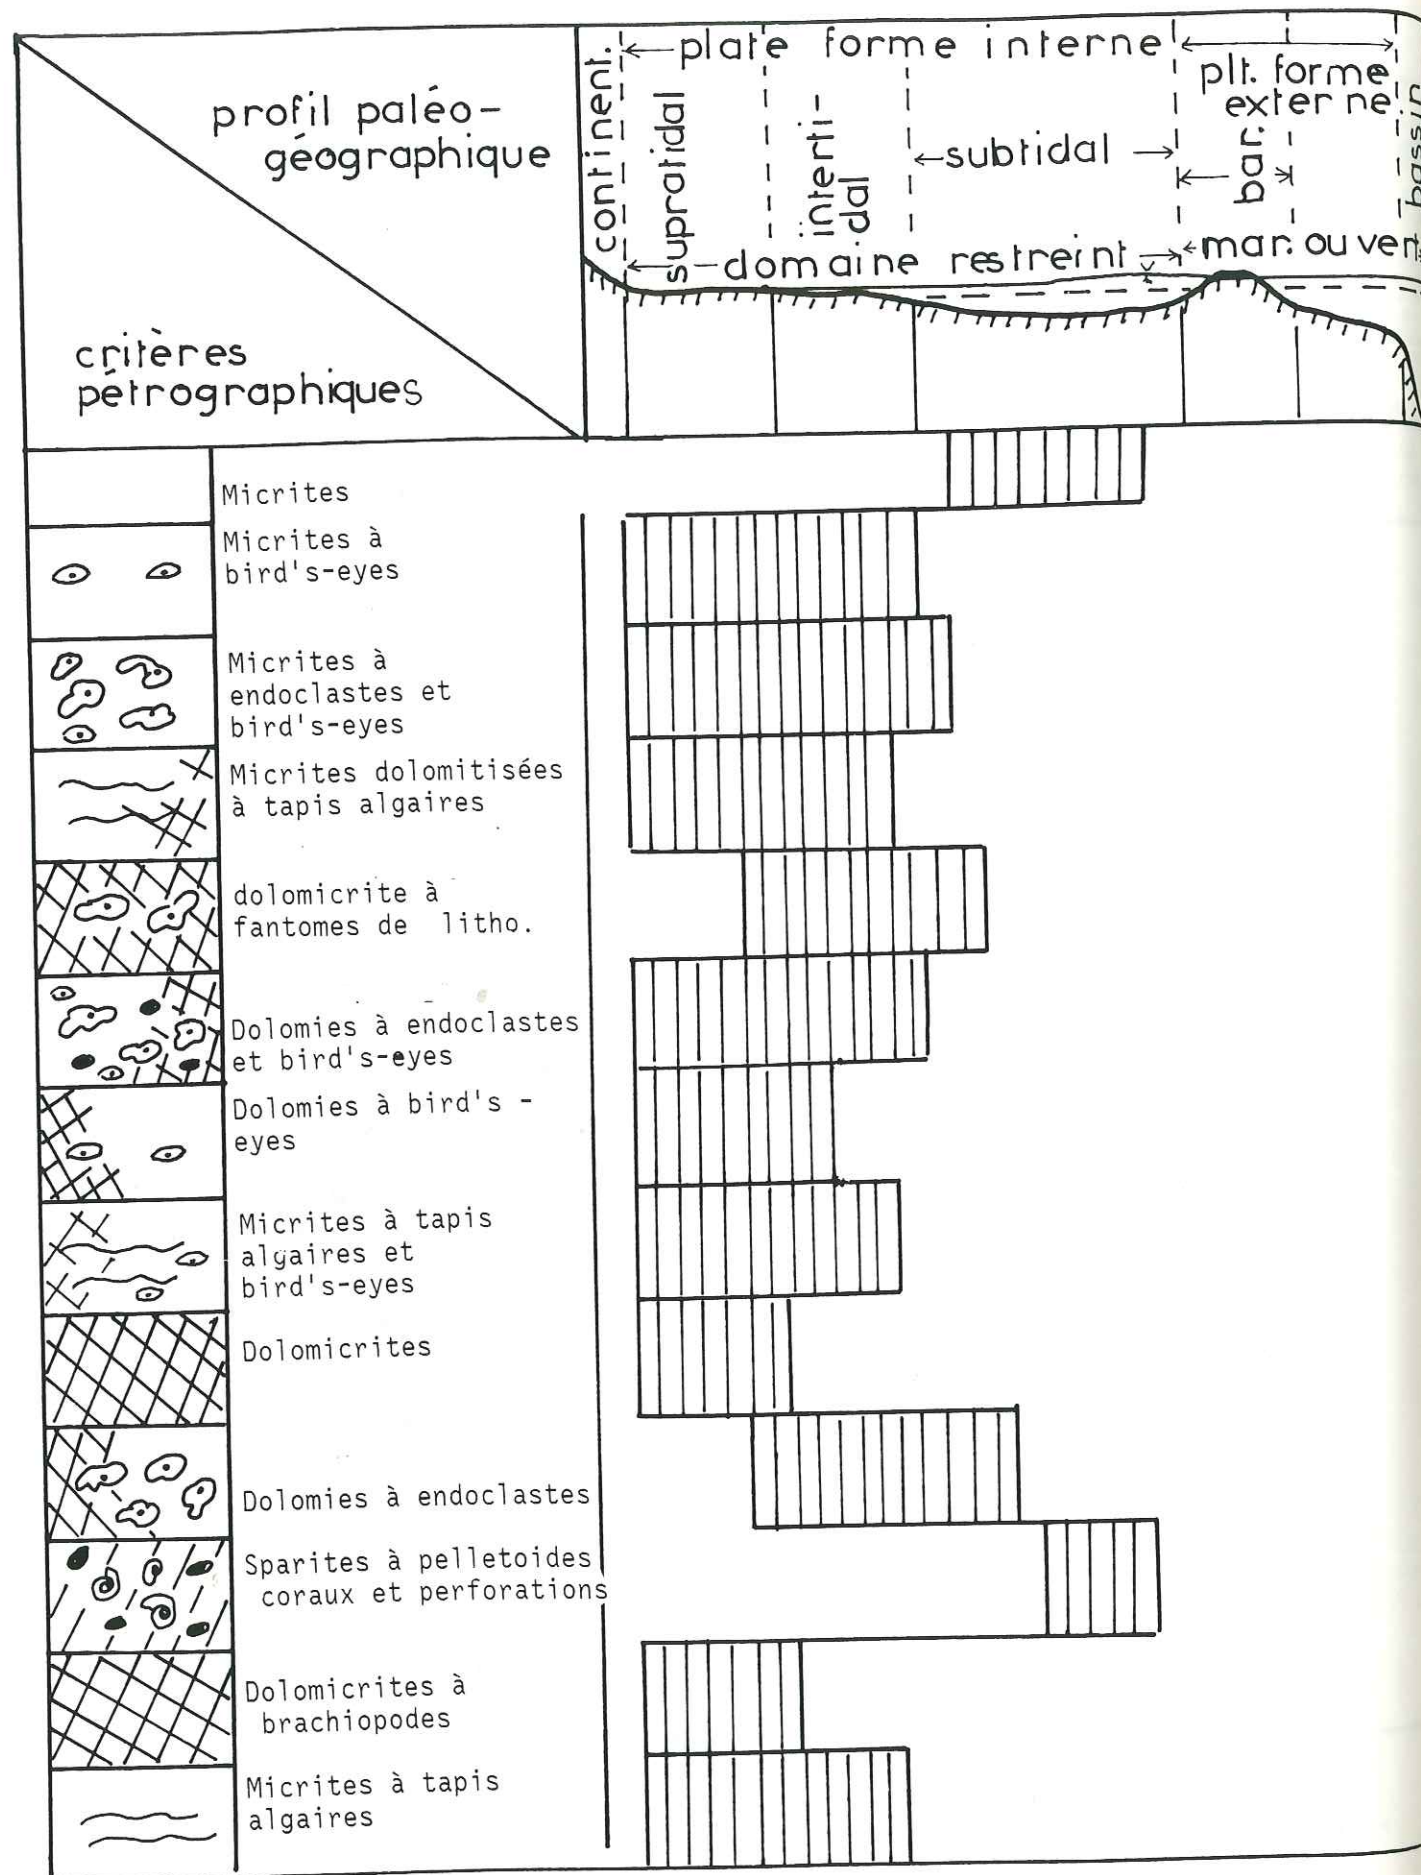 profil paléo-
géographique
critères
pétrographiques
continent.
plate forme interne
supratidal
interti-
dal
subtidal
plt. forme
externe
bar.
bassin
domaine restreint
mar. ouvert
Micrites
Micrites à
bird's-eyes
Micrites à
endoclastes et
bird's-eyes
Micrites dolomitisées
à tapis algaires
dolomicrite à
fantomes de litho.
Dolomies à endoclastes
et bird's-eyes
Dolomies à bird's -
eyes
Micrites à tapis
algaires et
bird's-eyes
Dolomicrites
Dolomies à endoclastes
Sparites à pelletoides
coraux et perforations
Dolomicrites à
brachiopodes
Micrites à tapis
algaires